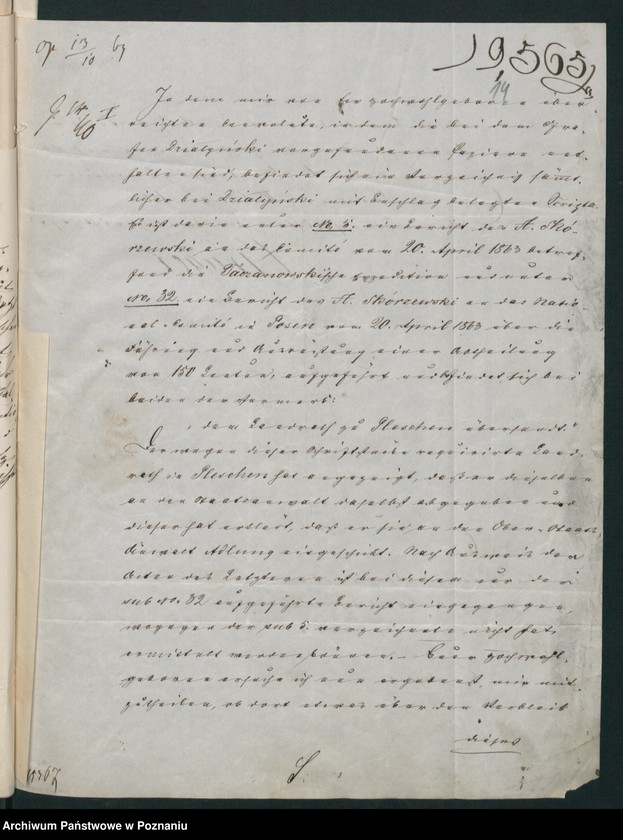 19565
14
In dem mir von Euer Hochwohlgeboren über-
reichten Convolute, in dem die bei dem Gra-
fen Dzialynski vorgefundenen Papiere ent-
halten sind, befindet sich ein Verzeichniß sämt-
licher bei Dzialynski mit Beschlag belegten Scripta.
Es ist darin unter No. 5. ein Bericht des A. Skó-
rzewski an das Comité vom 20. April 1863 betref-
fend die Taczanowskische Expedition und unter
No. 32. ein Bericht des A. Skórzewski an das Natio-
nal-Comité in Posen vom 20. April 1863 über die
Führung und Ausrüstung einer Abtheilung
von 150 Leuten, aufgeführt und befindet sich bei
beiden der Vermerk:
"dem Landrath zu Pleschen übersandt."
Der wegen dieser Schriftstücke requirirte Land-
rath in Pleschen hat angezeigt, daß er dieselben
an den Staatsanwalt daselbst abgegeben und
dieser hat erklärt, daß er sie an den Ober-Staats-
Anwalt Adlung eingeschickt. Nach Ausweis der
Acten des Letzteren ist bei diesem nur der
sub No. 32 aufgeführte Bericht eingegangen,
wogegen der sub 5. verzeichnete nicht hat
ermittelt werden können. – Euer Hochwohl-
geboren ersuche ich nun ergebenst, mir mit-
zutheilen, ob dort etwas über den Verbleib
dieses
Archiwum Państwowe w Poznaniu